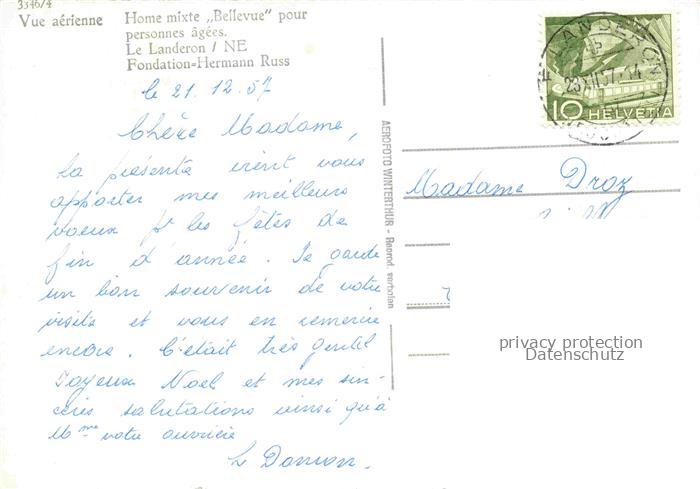 3346/4
Vue aérienne
Home mixte „Bellevue" pour
personnes âgées.
Le Landeron / NE
Fondation-Hermann Russ
le 21.12.57
Chère Madame,
La présente vient vous
apporter mes meilleurs
voeux p. les fêtes de
fin d'année. Je garde
un bon souvenir de votre
visite et vous en remercie
encore. C'était très gentil
Joyeux Noel et mes sin-
cères salutations ainsi qu'à
Mme votre ouvrière
AEROFOTO WINTERTHUR - Reprod. verboten
LANDERON
23.XII.57-14
10 HELVETIA
Madame Droz
privacy protection
Datenschutz